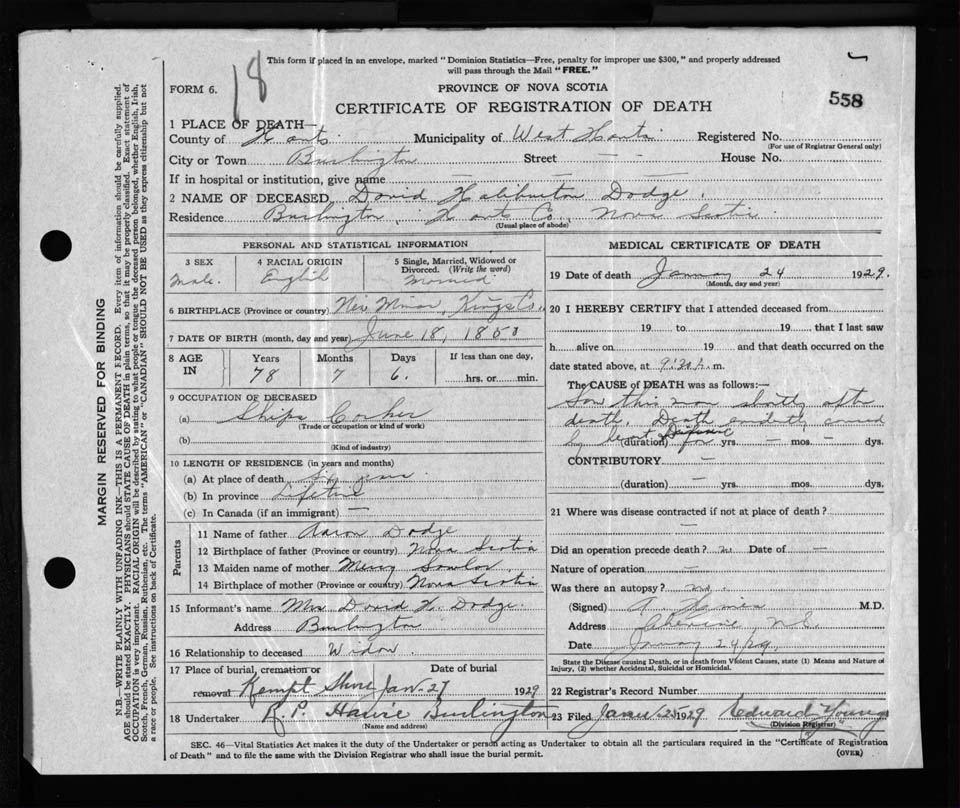 18
This form if placed in an envelope, marked "Dominion Statistics—Free, penalty for improper use $300," and properly addressed
will pass through the Mail "FREE."
FORM 6.
PROVINCE OF NOVA SCOTIA
CERTIFICATE OF REGISTRATION OF DEATH
558
1 PLACE OF DEATH—
County of Hants Municipality of West Hants Registered No.
(For use of Registrar General only)
City or Town Burlington Street — — House No.
If in hospital or institution, give name — — —
2 NAME OF DECEASED David Haliburton Dodge
Residence Burlington, Hants Co., Nova Scotia
(Usual place of abode)
PERSONAL AND STATISTICAL INFORMATION
3 SEX 4 RACIAL ORIGIN 5 Single, Married, Widowed or
Divorced. (Write the word)
Male. English Married
6 BIRTHPLACE (Province or country) Kings Co.
7 DATE OF BIRTH (month, day and year) June 18, 1850
8 AGE IN Years Months Days If less than one day,
78 7 6. hrs. or min.
9 OCCUPATION OF DECEASED
(a) Ships Corker
(Trade or occupation or kind of work)
(b)
(Kind of industry)
10 LENGTH OF RESIDENCE (in years and months)
(a) At place of death years
(b) In province Lifetime
(c) In Canada (if an immigrant) —
Parents
11 Name of father Aaron Dodge
12 Birthplace of father (Province or country) Nova Scotia
13 Maiden name of mother
14 Birthplace of mother (Province or country) Nova Scotia
15 Informant's name Mrs David H. Dodge
Address Burlington
16 Relationship to deceased Widow.
17 Place of burial, cremation or Date of burial
removal Kempt Shore Jan. 27 1929
18 Undertaker R. P. Harvie Burlington
(Name and address)
MEDICAL CERTIFICATE OF DEATH
19 Date of death January 24 1929.
(Month, day and year)
20 I HEREBY CERTIFY that I attended deceased from
19 to 19 , that I last saw
h alive on 19 and that death occurred on the
date stated above, at 9:30 m.
The CAUSE of DEATH was as follows:—
Saw this man shortly after
death. Death evidently caused
by heart Disease
(duration) yrs. — mos. — dys.
CONTRIBUTORY —
(duration) — yrs. mos. dys.
21 Where was disease contracted if not at place of death?
—
Did an operation precede death? no Date of —
Nature of operation —
Was there an autopsy? no.
(Signed) A. M.D.
Address Cheverie, N.S.
Date January 24/29.
State the Disease causing Death, or in death from Violent Causes, state (1) Means and Nature of
Injury, (2) whether Accidental, Suicidal or Homicidal.
22 Registrar's Record Number
23 Filed 1929 Edward Young
(Division Registrar)
SEC. 46—Vital Statistics Act makes it the duty of the Undertaker or person acting as Undertaker to obtain all the particulars required in the "Certificate of Registration
of Death" and to file the same with the Division Registrar who shall issue the burial permit. (OVER)
MARGIN RESERVED FOR BINDING
N.B.—WRITE PLAINLY WITH UNFADING INK—THIS IS A PERMANENT RECORD. Every item of information should be carefully supplied.
AGE should be stated EXACTLY. PHYSICIANS should STATE CAUSE OF DEATH in plain terms, so that it may be properly classified. Exact statement of
OCCUPATION is very important. RACIAL ORIGIN will be described by stating to what people or tongue the deceased person belonged, whether English, Irish,
Scotch, French, German, Russian, Ruthenian, etc. The terms "AMERICAN" or "CANADIAN" SHOULD NOT BE USED as they express citizenship but not
a race or people. See instructions on back of Certificate.